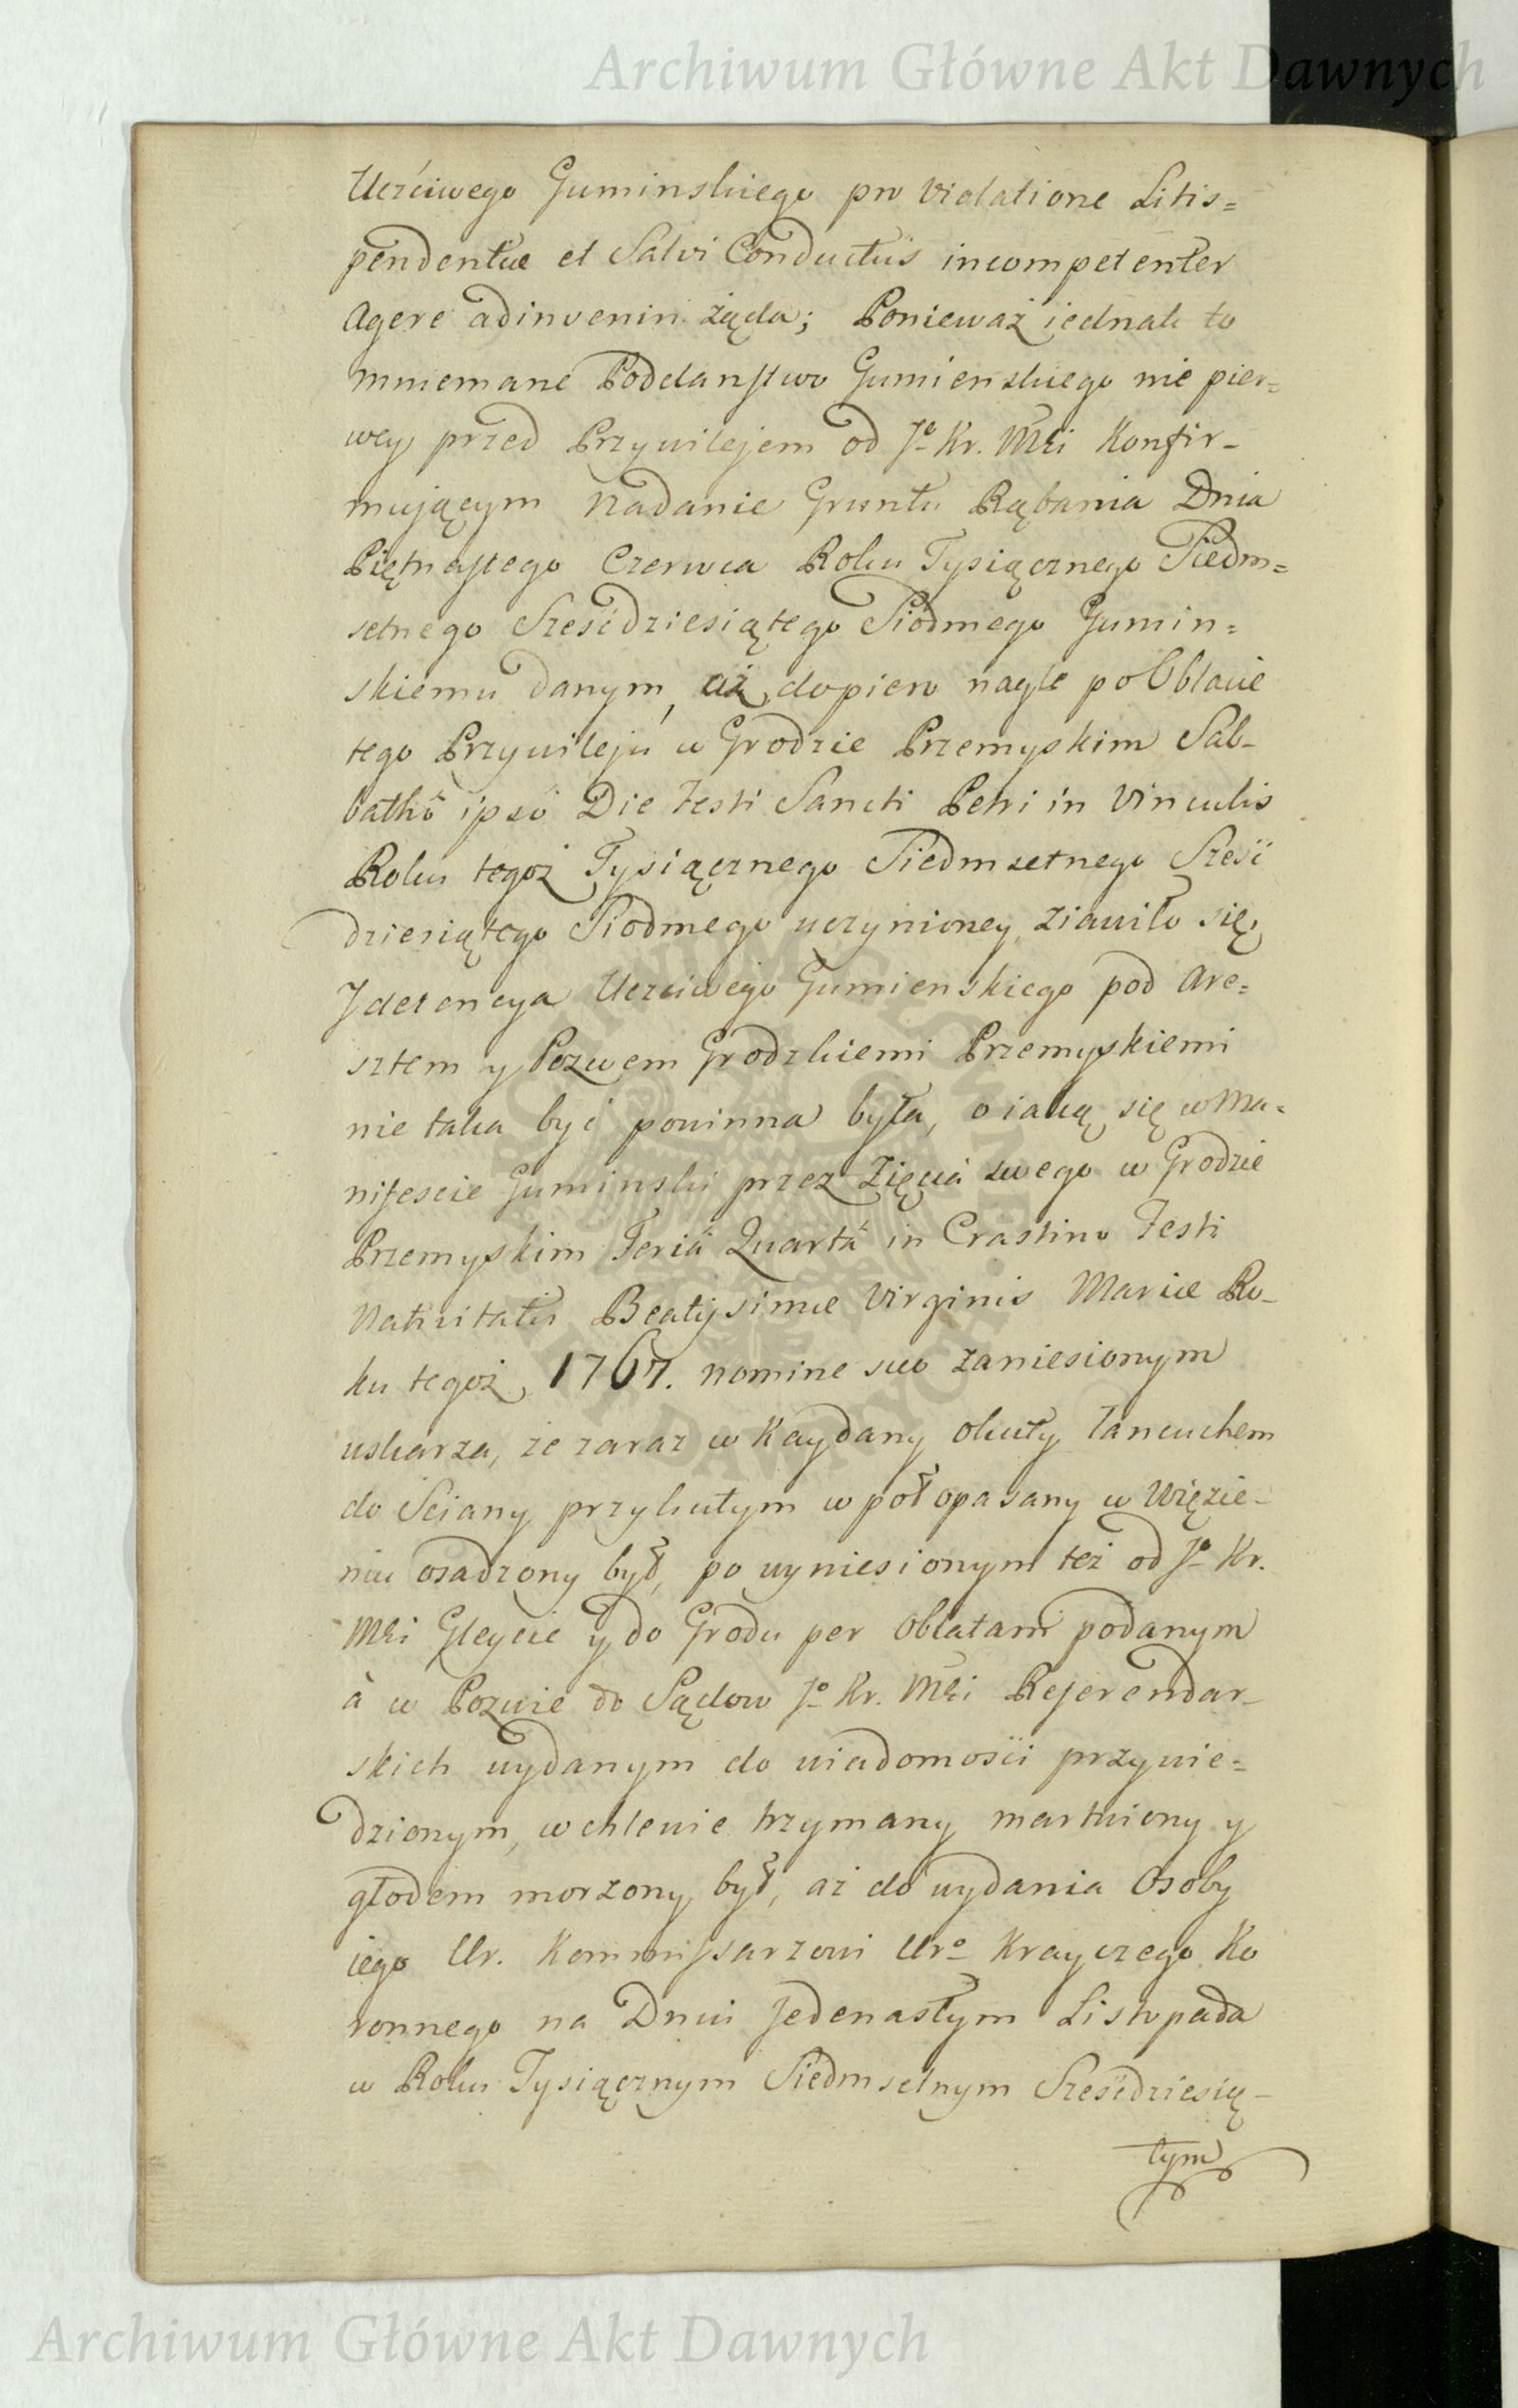 Archiwum Główne Akt Dawnych
Uczciwego Guminskiego pro Violatione Litis=
pendentiæ et Salvi Conductûs incompetenter
Agere adinveniri żąda; Ponieważ iednak to
mniemane Poddanstwo Gumienskiego nie pier=
wey przed Przywilejem od Jº Kr. Mći Konfir-
muiącym Nadanie Gruntu Rąbania Dnia
Piętnastego Czerwca Roku Tysiącznego Siedm=
setnego Sześćdziesiątego Siodmego Gumin=
skiemu danym, aż dopiero nagle po Oblacie
tego Przywileju w Grodzie Przemyskim Sab-
bathô ipsô Die Festi Sancti Petri in Vinculis
Roku tegoż Tysiącznego Siedmsetnego Sześć
dziesiątego Siodmego uczynioney, ziawiło się,
Jdetencya Uczciwego Gumienskiego pod Are=
sztem y Pozwem Grodzkiemi Przemyskiemi
nie taka być powinna była, o iaką się w Ma=
nifescie Guminski przez Zięcia swego w Grodzie
Przemyskim Feriâ Quartâ in Crastino Festi
Nativitatis Beatissimæ Virginis Mariæ Ro-
ku tegoż 1767. nomine suo zaniesionym
uskarza, że zaraz w Kaydany okuty łancuchem
do Sciany przykutym w poł opasany w Więzie-
niu osadzony był, po wyniesionym też od Jº Kr.
Mći Gleycie y do Grodu per Oblatam podanym
à w Pozwie do Sądow Jº Kr. Mći Referendar-
skich wydanym do wiadomości przywie=
dzionym, w chlewie trzymany martwiony y
głodem morzony był, aż do wydania Osoby
iego Ur. Kommissarzowi Urº Krayczego Ko
ronnego na Dniu Jedenastym Listopada
w Roku Tysiącznym Siedmsetnym Sześćdziesią-
tym
Archiwum Główne Akt Dawnych